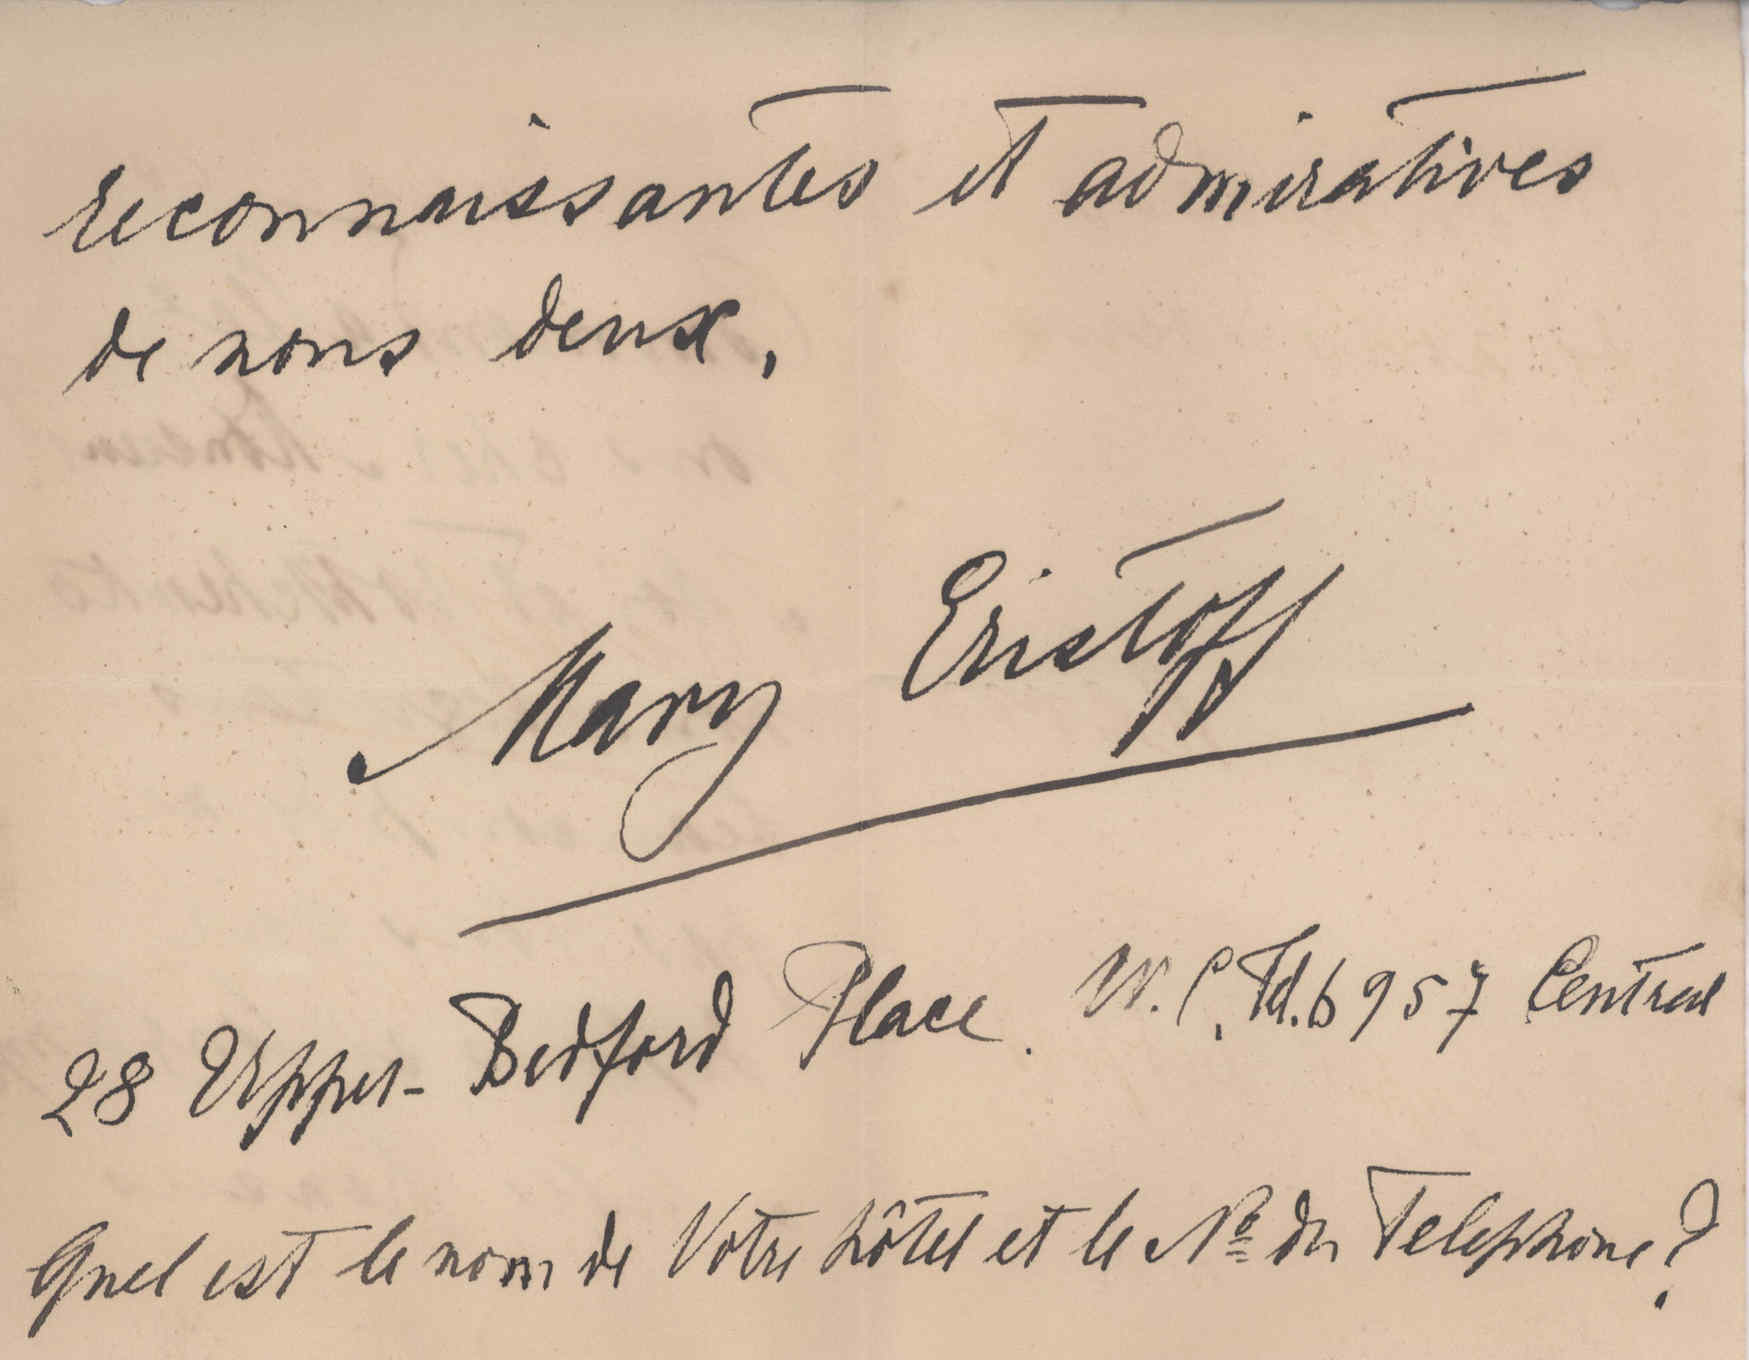 reconnaissantes et admiratives
de nous deux.
Mary Eristoff
28 Upper-Bedford Place. W.C. Tel. 6957 Central
Quel est le nom de Votre hôtel et le Nº du Telephone?